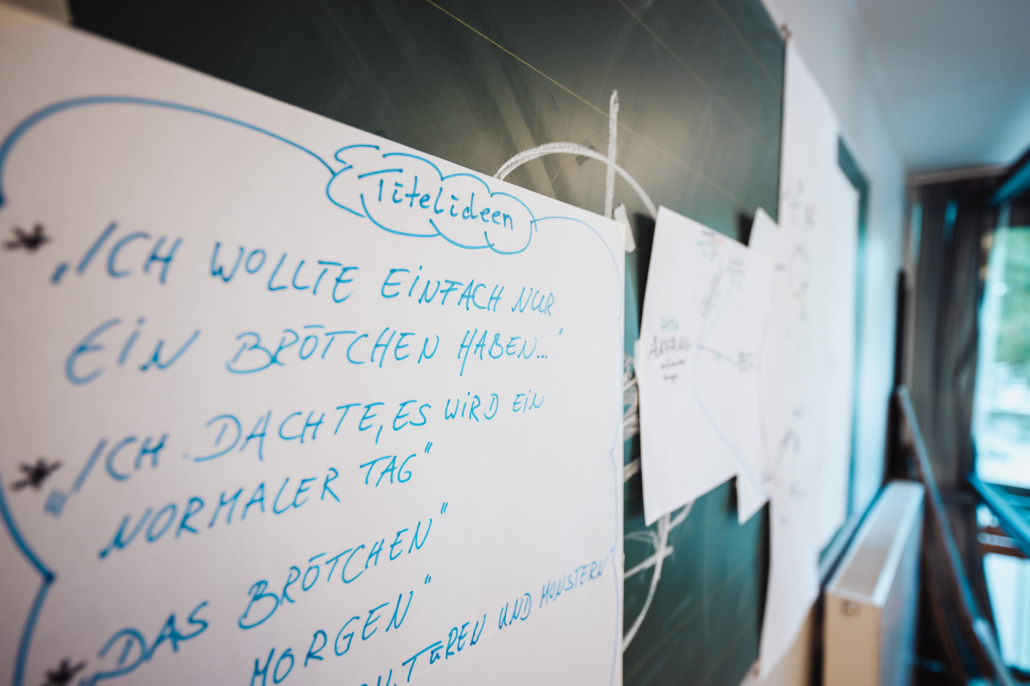 Titelideen
* „ICH WOLLTE EINFACH NUR
EIN BRÖTCHEN HABEN..."
* „ICH DACHTE, ES WIRD EIN
NORMALER TAG"
* „DAS BRÖTCHEN"
MORGEN"
TÜREN UND MONSTERN"
ANFANG